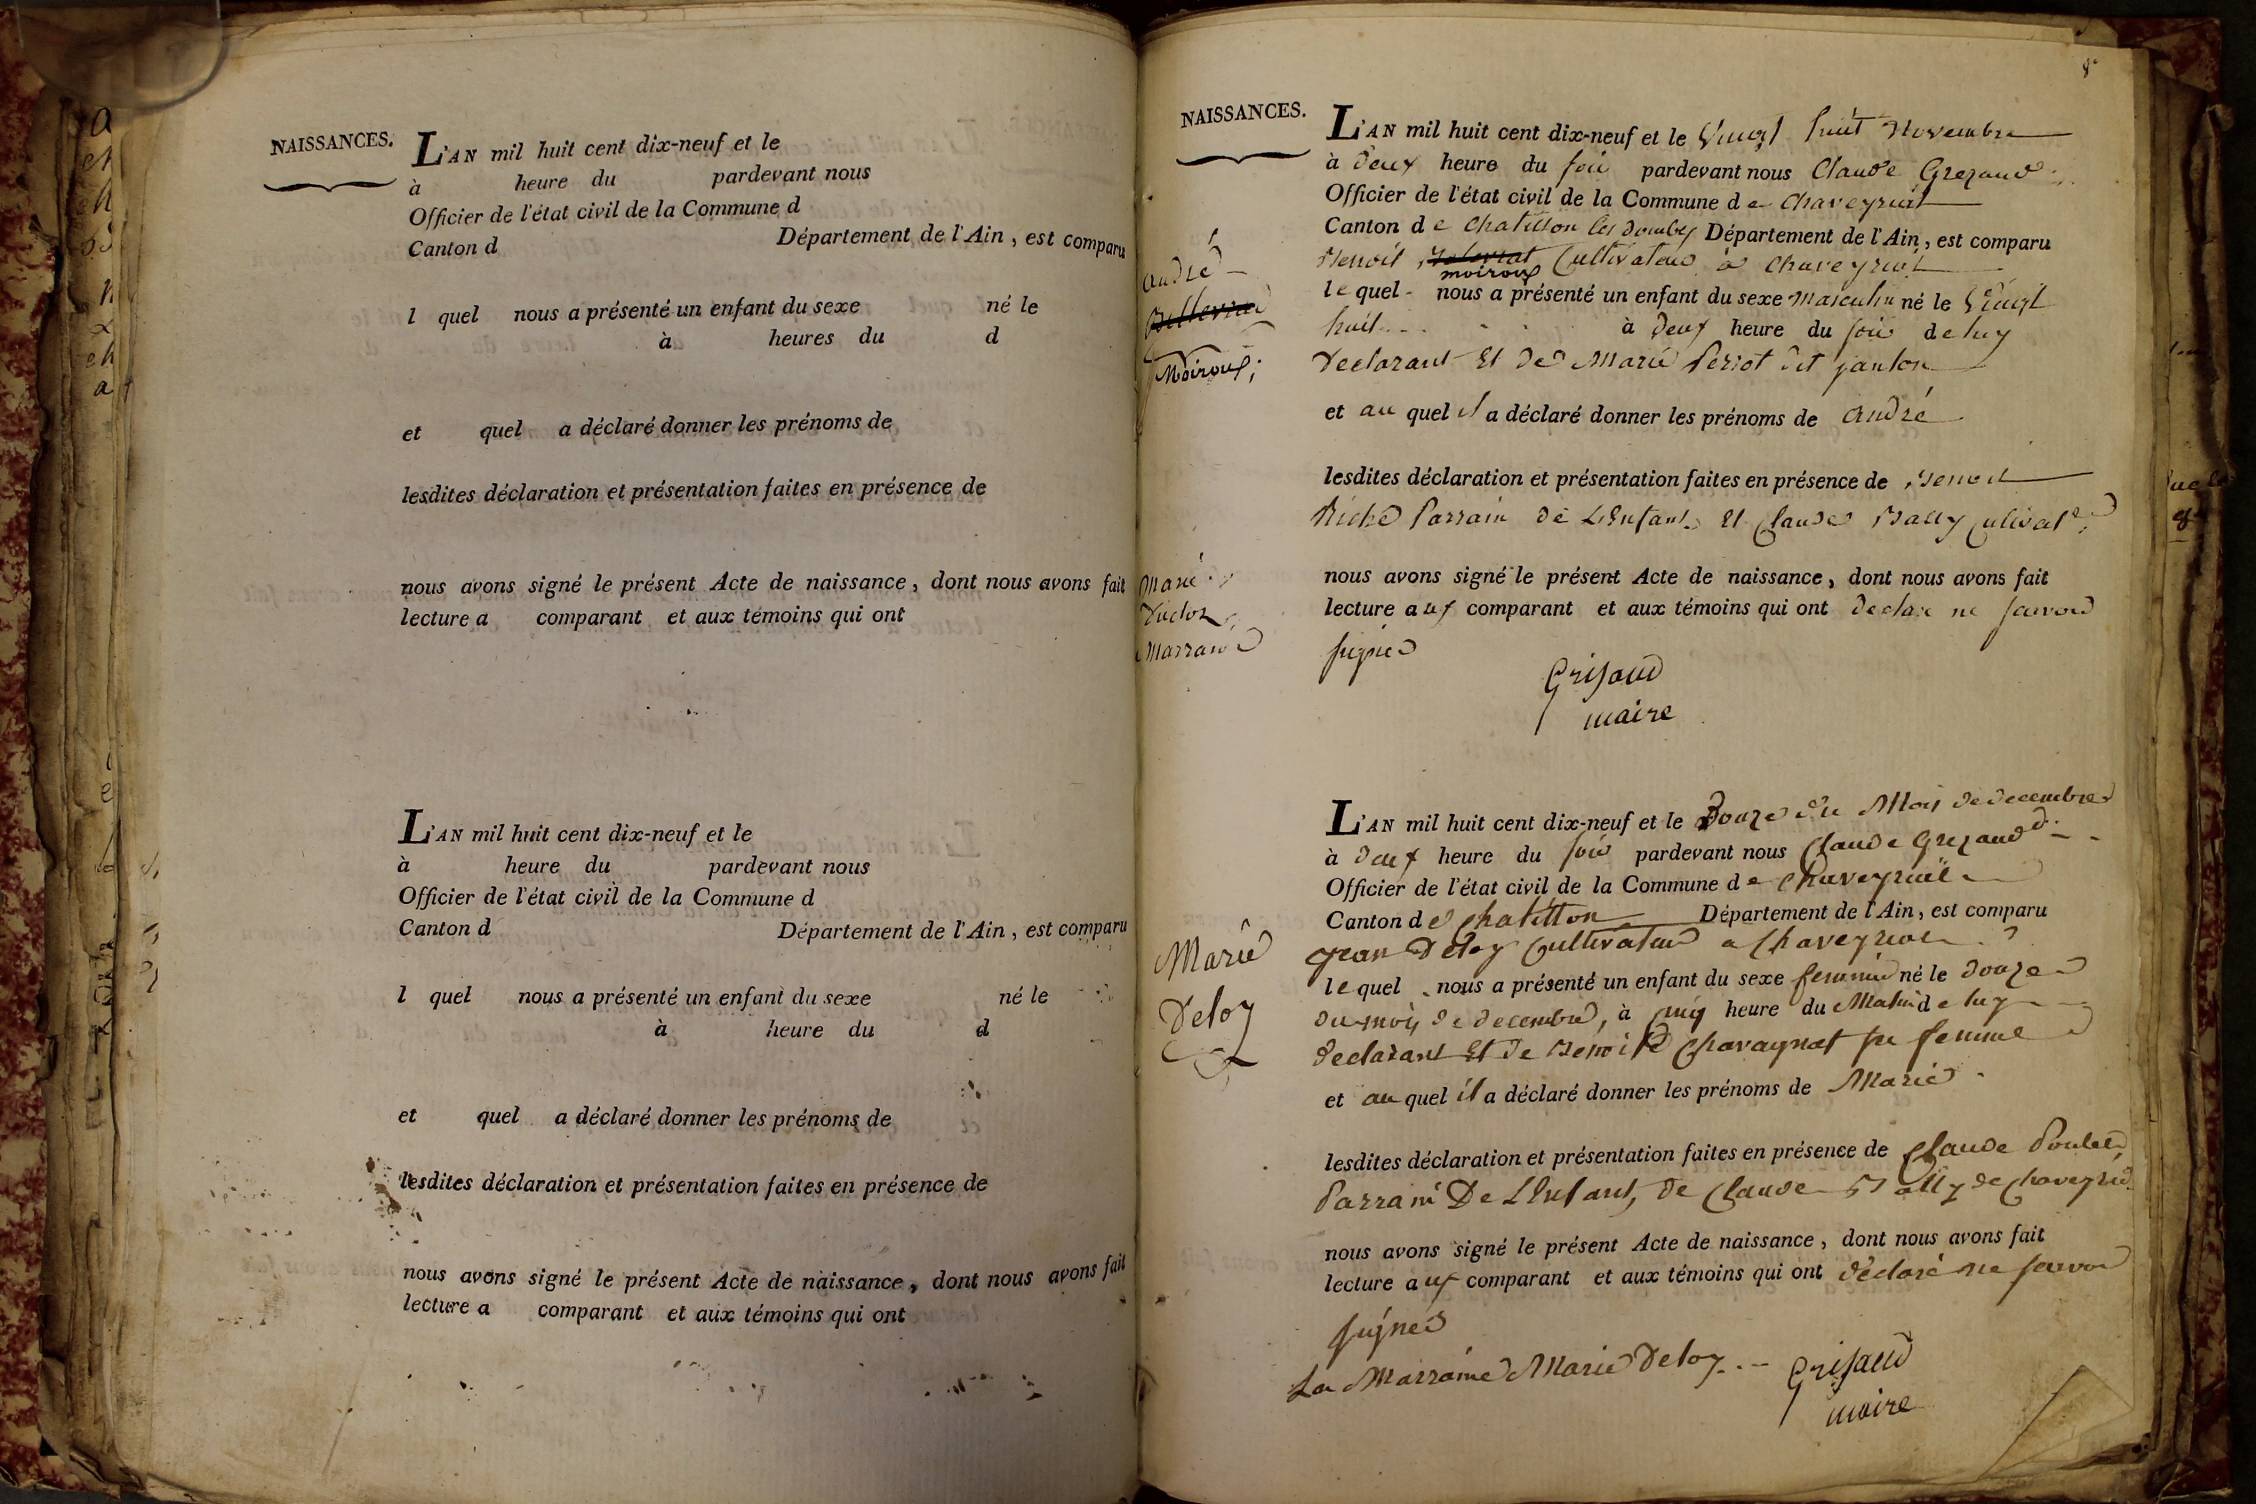 NAISSANCES.
L'AN mil huit cent dix-neuf et le
à heure du pardevant nous
Officier de l'état civil de la Commune d
Canton d Département de l'Ain, est comparu
l quel nous a présenté un enfant du sexe né le
à heures du d
et quel a déclaré donner les prénoms de
lesdites déclaration et présentation faites en présence de
nous avons signé le présent Acte de naissance, dont nous avons fait
lecture a comparant et aux témoins qui ont
L'AN mil huit cent dix-neuf et le
à heure du pardevant nous
Officier de l'état civil de la Commune d
Canton d Département de l'Ain, est comparu
l quel nous a présenté un enfant du sexe né le
à heure du d
et quel a déclaré donner les prénoms de
lesdites déclaration et présentation faites en présence de
nous avons signé le présent Acte de naissance, dont nous avons fait
lecture a comparant et aux témoins qui ont
8
NAISSANCES.
L'AN mil huit cent dix-neuf et le Vingt huit Novembre
à deux heure du soir pardevant nous Claude Grezaud
Officier de l'état civil de la Commune de Chaveyriat
Canton de Chatillon les dombes Département de l'Ain, est comparu
Benoit moiroux Cultivateur à Chaveyriat
le quel nous a présenté un enfant du sexe masculin né le Vingt
huit à deux heure du soir de luy
declarant Et de Marie Perrot dit janton
et au quel il a déclaré donner les prénoms de andré
lesdites déclaration et présentation faites en présence de Benoit
Riche Parrain de L'Enfant Et Claude Bally cultivatr
nous avons signé le présent Acte de naissance, dont nous avons fait
lecture aux comparant et aux témoins qui ont declare ne savoir
signer
Grisaud
maire
andré
Moiroux;
Marie
Duclos
Marraine
L'AN mil huit cent dix-neuf et le Douze du Mois de decembre
à deux heure du soir pardevant nous Claude Grezaud
Officier de l'état civil de la Commune de Chaveyriat
Canton de Chatillon Département de l'Ain, est comparu
jean Deloy Cultivateur a Chaveyriat
le quel nous a présenté un enfant du sexe feminin né le douze
du mois de decembre, à cinq heure du Matin de luy
declarant Et de Benoite Chavagnat sa femme
et au quel il a déclaré donner les prénoms de Marie
lesdites déclaration et présentation faites en présence de Claude Poulet
Parrain De L'Enfant, de Claude Bally de Chaveyriat
nous avons signé le présent Acte de naissance, dont nous avons fait
lecture aux comparant et aux témoins qui ont déclaré ne savoir
signer
La Marraine Marie Deloy
Grisaud
maire
Marie
Deloy